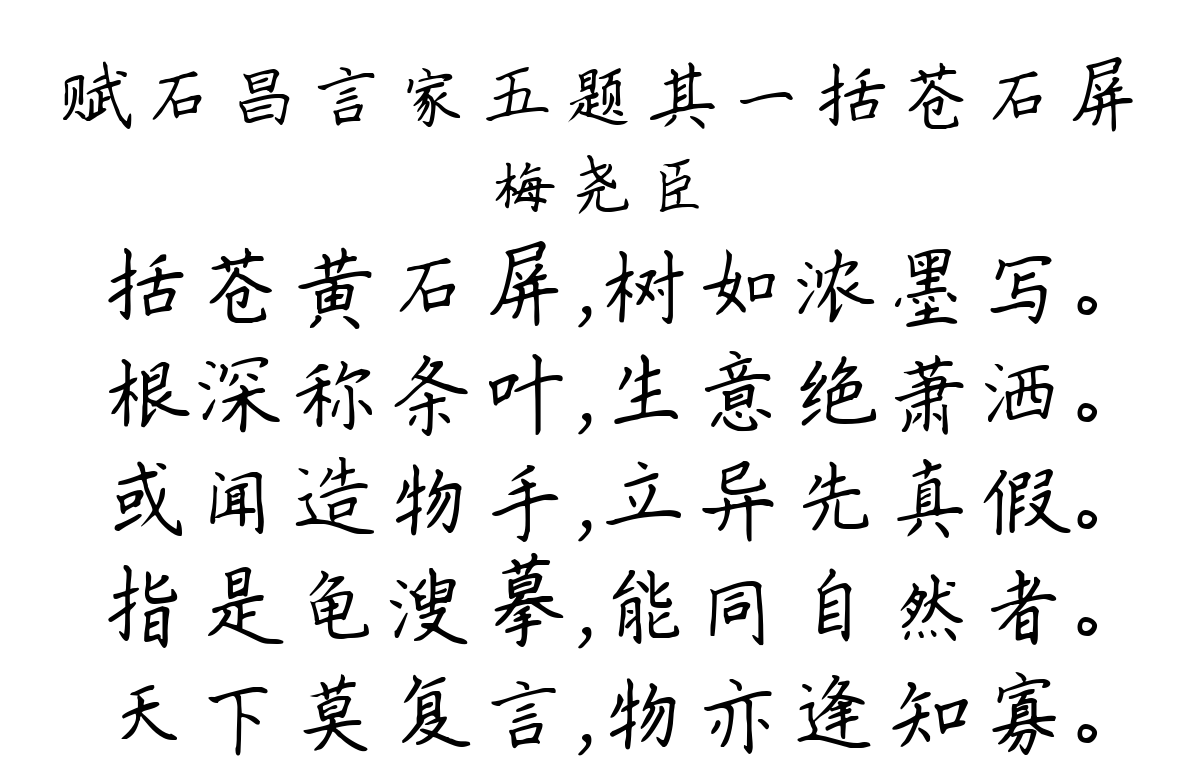 赋石昌言家五题其一括苍石屏
梅尧臣
括苍黄石屏,树如浓墨写。
根深称条叶,生意绝萧洒。
或闻造物手,立异先真假。
指是龟溲摹,能同自然者。
天下莫复言,物亦逢知寡。